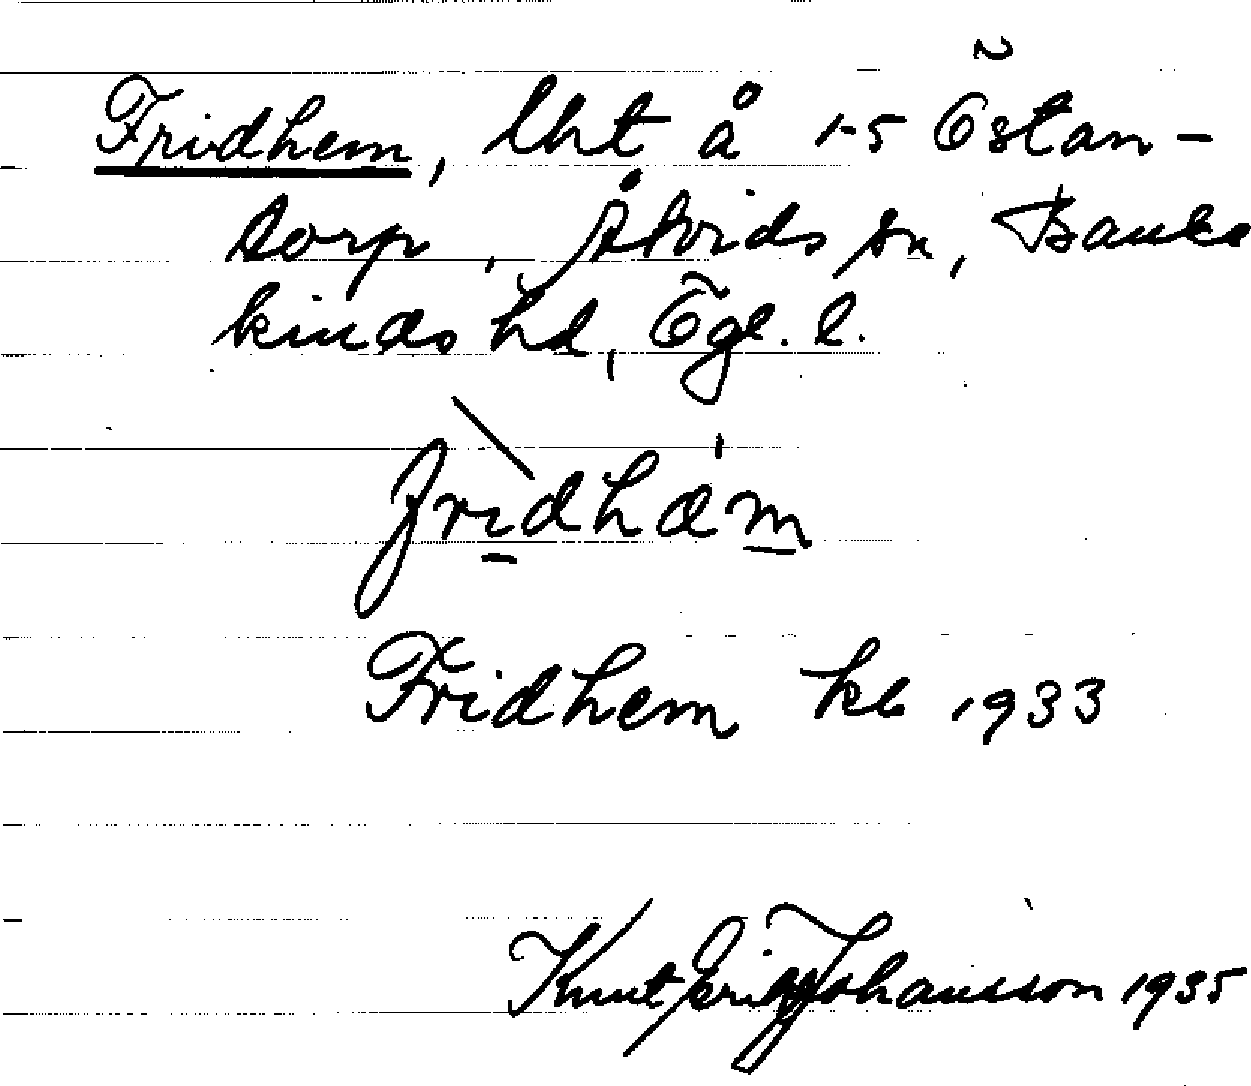 Fridhem, lht å 1-5 Östan-
torp, Åtvids sn, Banke
kinds hd, Ögl. l.
fridhæm
Fridhem kb 1933
Knut Erik Johansson 1935